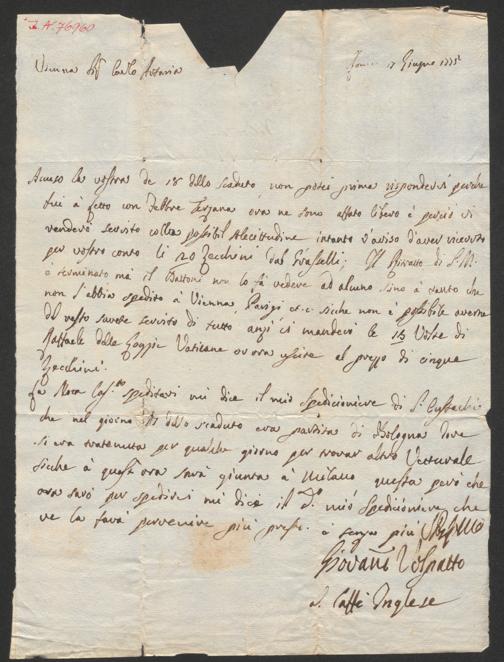 I. N. 76960
Vienna Sigr Carlo Artaria
Roma 17 Giugno 1775
Accuso la vostra de 18 dello scaduto non potei prima rispondervi perche
fui à letto con Febbre Terzana ora ne sono affato libero è perciò vi
renderò servito colla possibil solecitudine intanto v'aviso d'aver ricevuto
per vostro conto li 20 Zecchini dal Il Rivatto di S. M.
è terminato mà il Battoni non lo fà vedere ad alcuno sino à tanto che
non l'abbia spedito à Vienna, Parigi etc. sicche non è possibile averne
del resto sarete servito di tutto, anzi vi manderò le 13 Volte di
Raffaele delle Loggie Vaticane or ora uscite al prezzo di cinque
Zecchini.
La Nota Cassta speditavi mi dice il mio spedizioniere di S. Eustachio
che nel giorno dello scaduto era partita di Bologna dove
si era trattenuta per qualche giorno per trovar altro Vetturale
sicche à quest ora sarà giunta à Milano questa però che
ora sarò per spedirvi mi dice il do mio Spedizioniere che
ve la farà pervenire più presto. è senza più
Giovañi
al Caffè Inglese